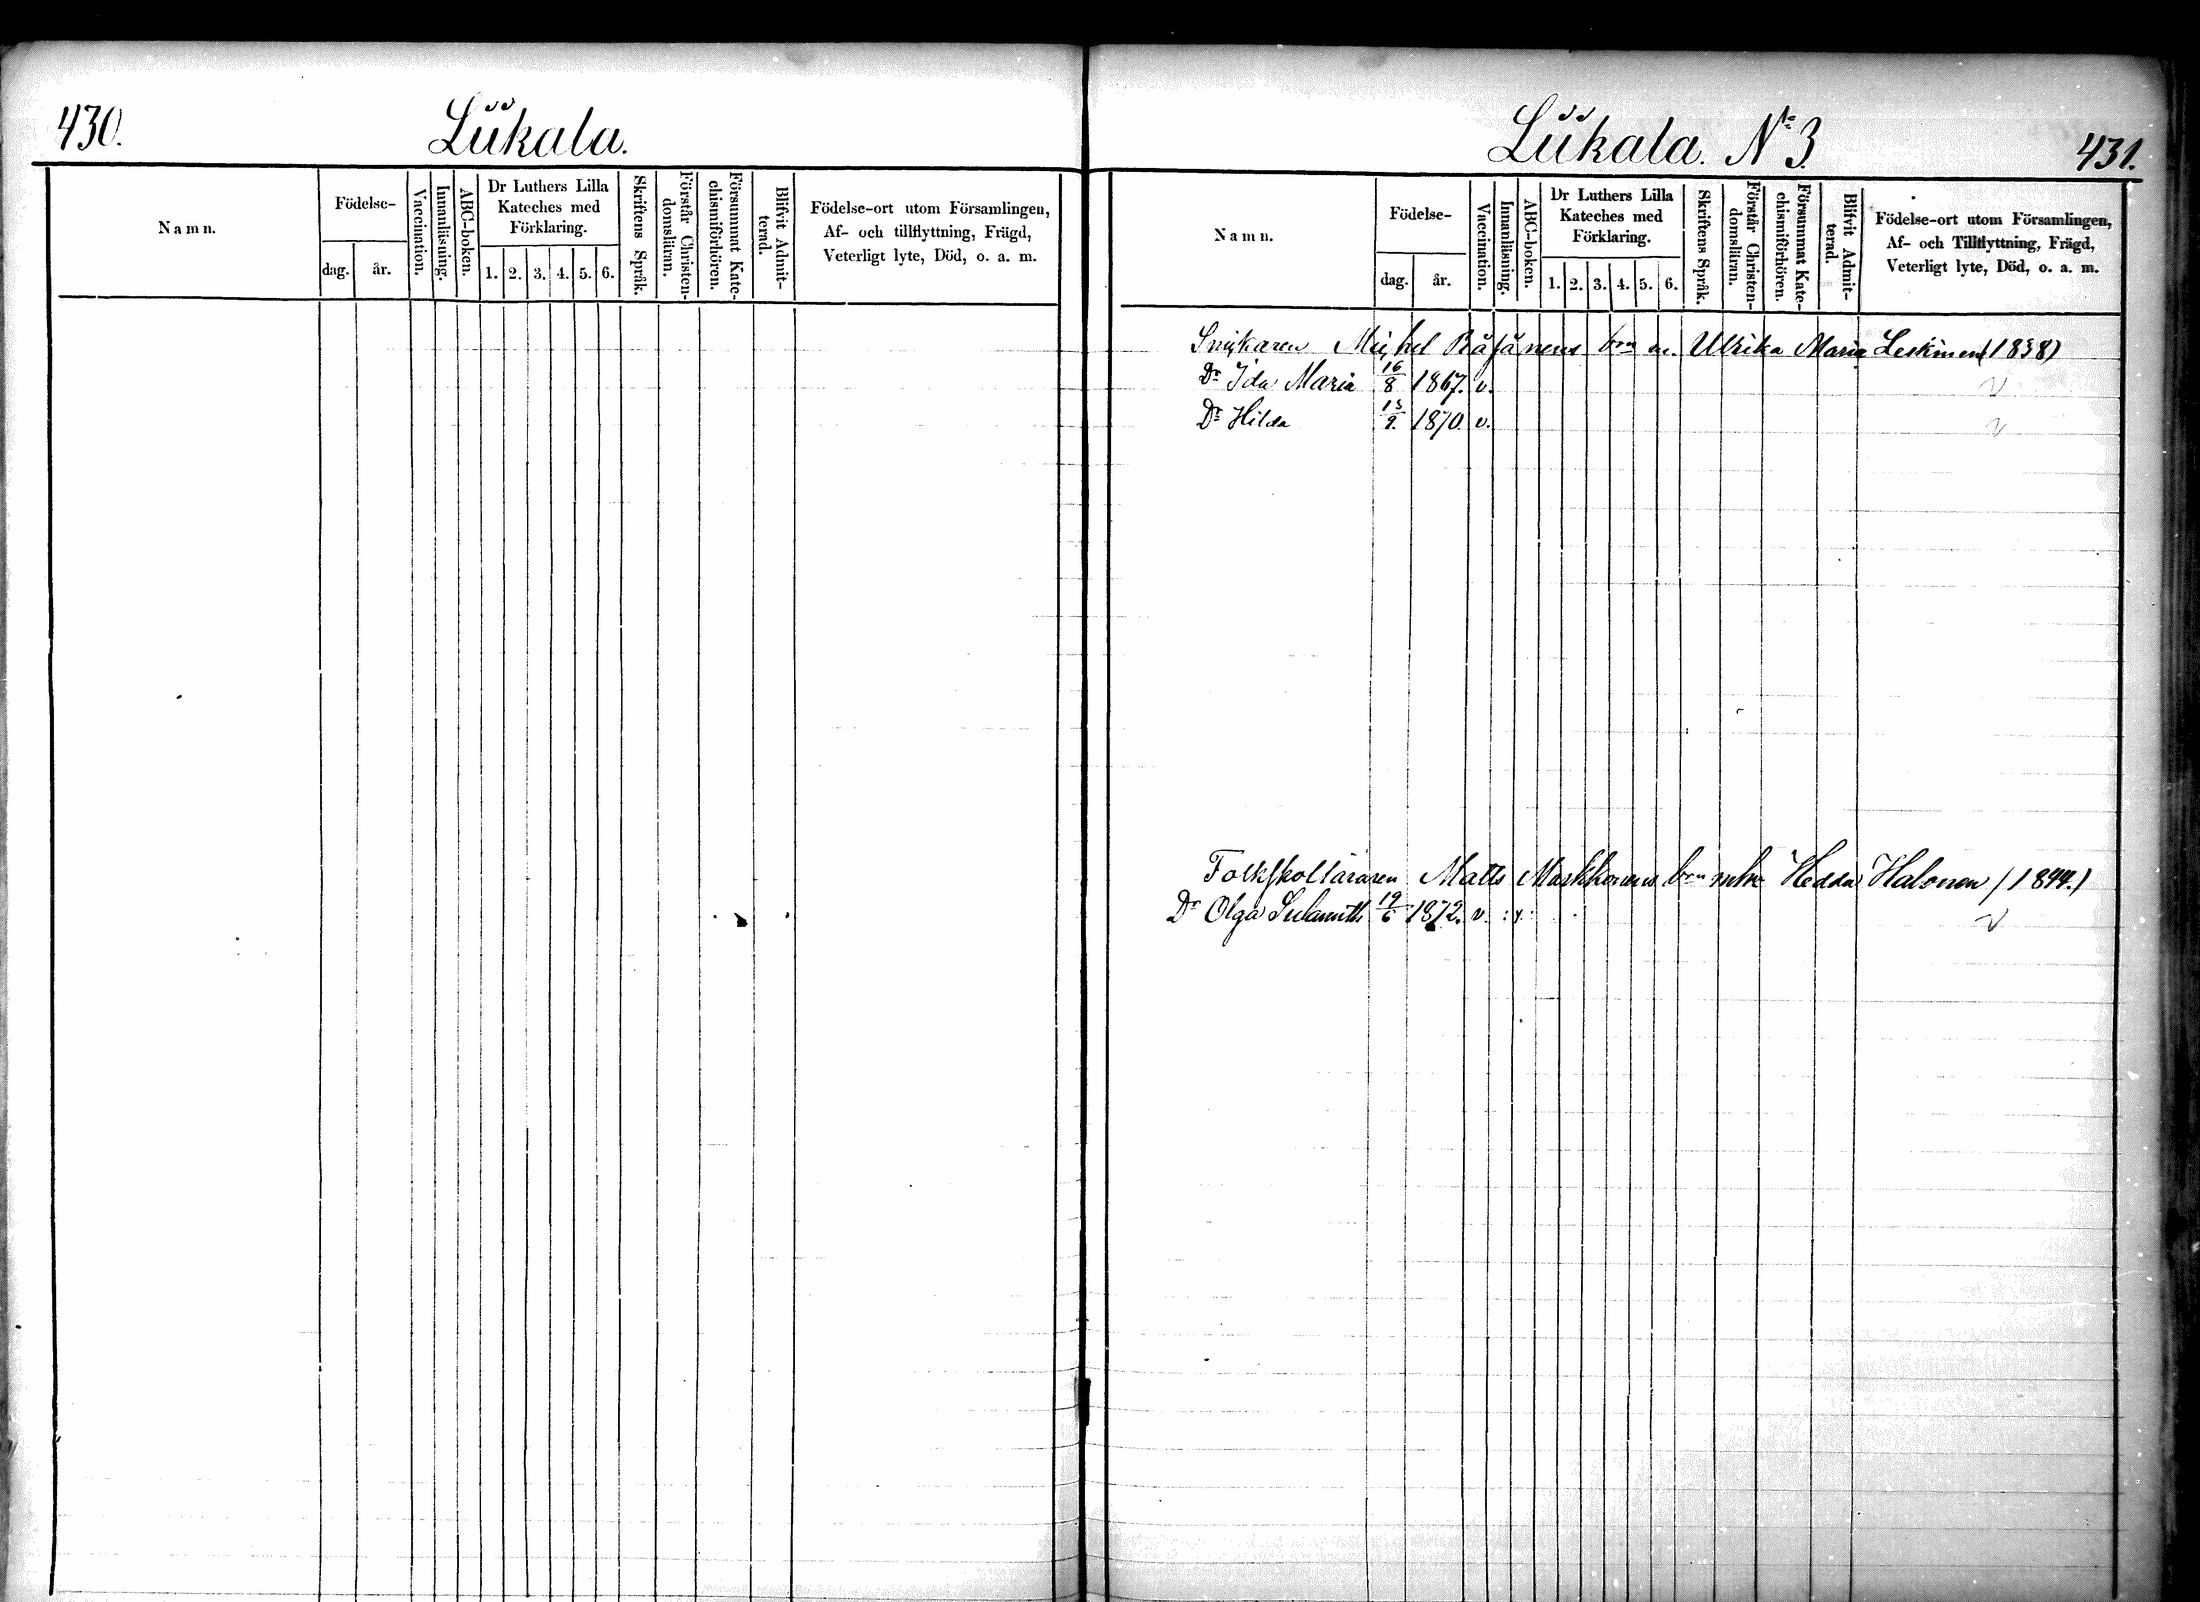 430.
Liikala.
Namn.
Födelse-
dag.
år.
Vaccination.
Innanläsning.
ABC-boken.
Dr Luthers Lilla
Kateches med
Förklaring.
1. 2. 3. 4. 5. 6.
Skriftens Språk.
Förstår Christen-
domsläran.
Försummat Kate-
chismiförhören.
Blifvit Admit-
terad.
Födelse-ort utom Församlingen,
Af- och tillflyttning, Frägd,
Veterligt lyte, Död, o. a. m.
Liikala. No 3.
431.
Namn.
Födelse-
dag.
år.
Vaccination.
Innanläsning.
ABC-boken.
Dr Luthers Lilla
Kateches med
Förklaring.
1. 2. 3. 4. 5. 6.
Skriftens Språk.
Förstår Christen-
domsläran.
Försummat Kate-
chismiförhören.
Blifvit Admit-
terad.
Födelse-ort utom Församlingen,
Af- och Tillflyttning, Frägd,
Veterligt lyte, Död, o. a. m.
Snickaren Michel Räsänens brn m. Ulrika Maria Leskinen (1838)
Dr Ida Maria 16/8 1867. v. v
Dr Hilda 13/9. 1870. v. v
Folkskolläraren Matts Markkanens brn m hu Hedda Halonen (1844.)
Dr Olga Sulamith 19/6 1872. v. : y : v